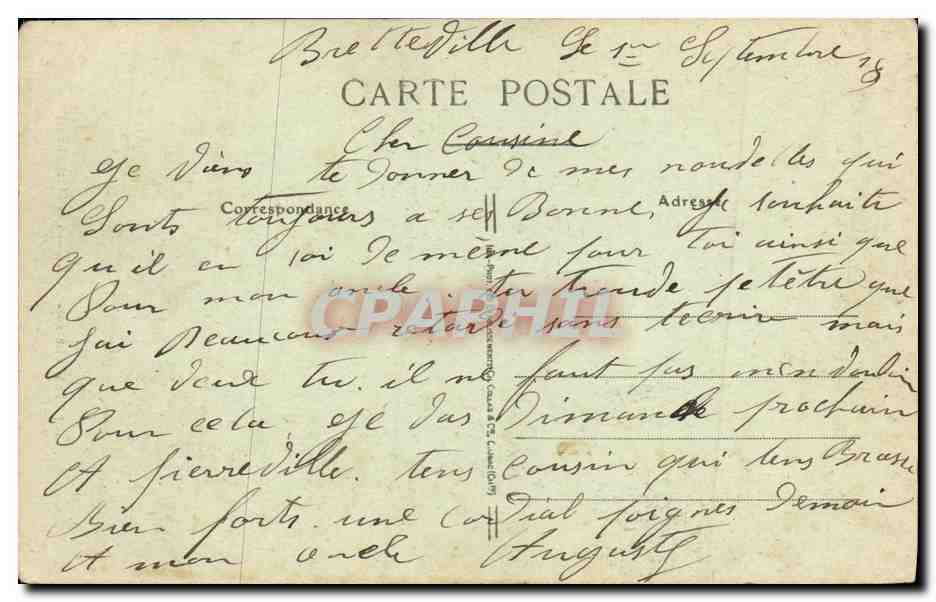 Bretteville Le 1er Septembre 18
CARTE POSTALE
Cher Cousine
Je viens te donner de mes nouvelles qui
Correspondance
Adresse
Sonts toujours a ses Bonne, Je souhaite
qu il en soi de meme pour toi ainsi que
Pour mon oncle. tu trouve petêtre que
CPAPHIL
jai Beaucoup retardé sans tecrire mais
que veux tu. il ne faut pas men vouloir
Pour cela, Je vas Dimanche prochain
A pierreville. tons cousin qui tens Brasse
Bien forts. une cordial poignes demain
A mon oncle Auguste